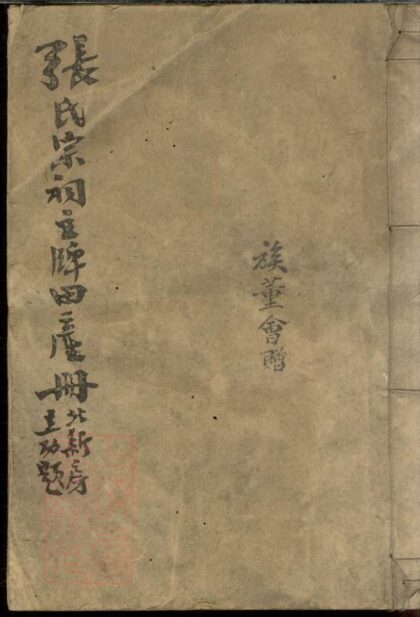 族董會贈
張氏宗祠主牌田產冊
北新房